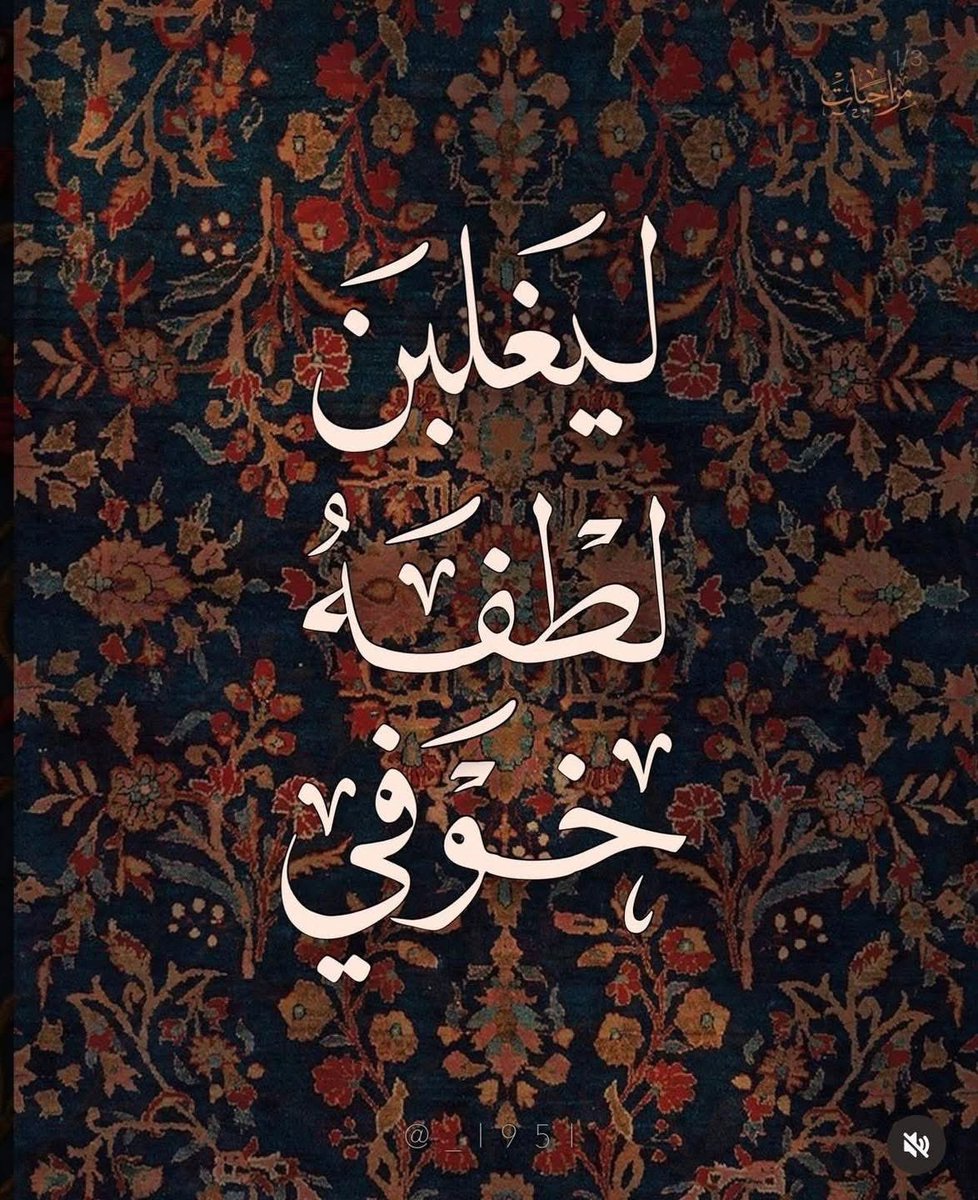 1/3
مزاجيات
ليَغلبنَ
لطفَهُ
خَوَفي
@_1951